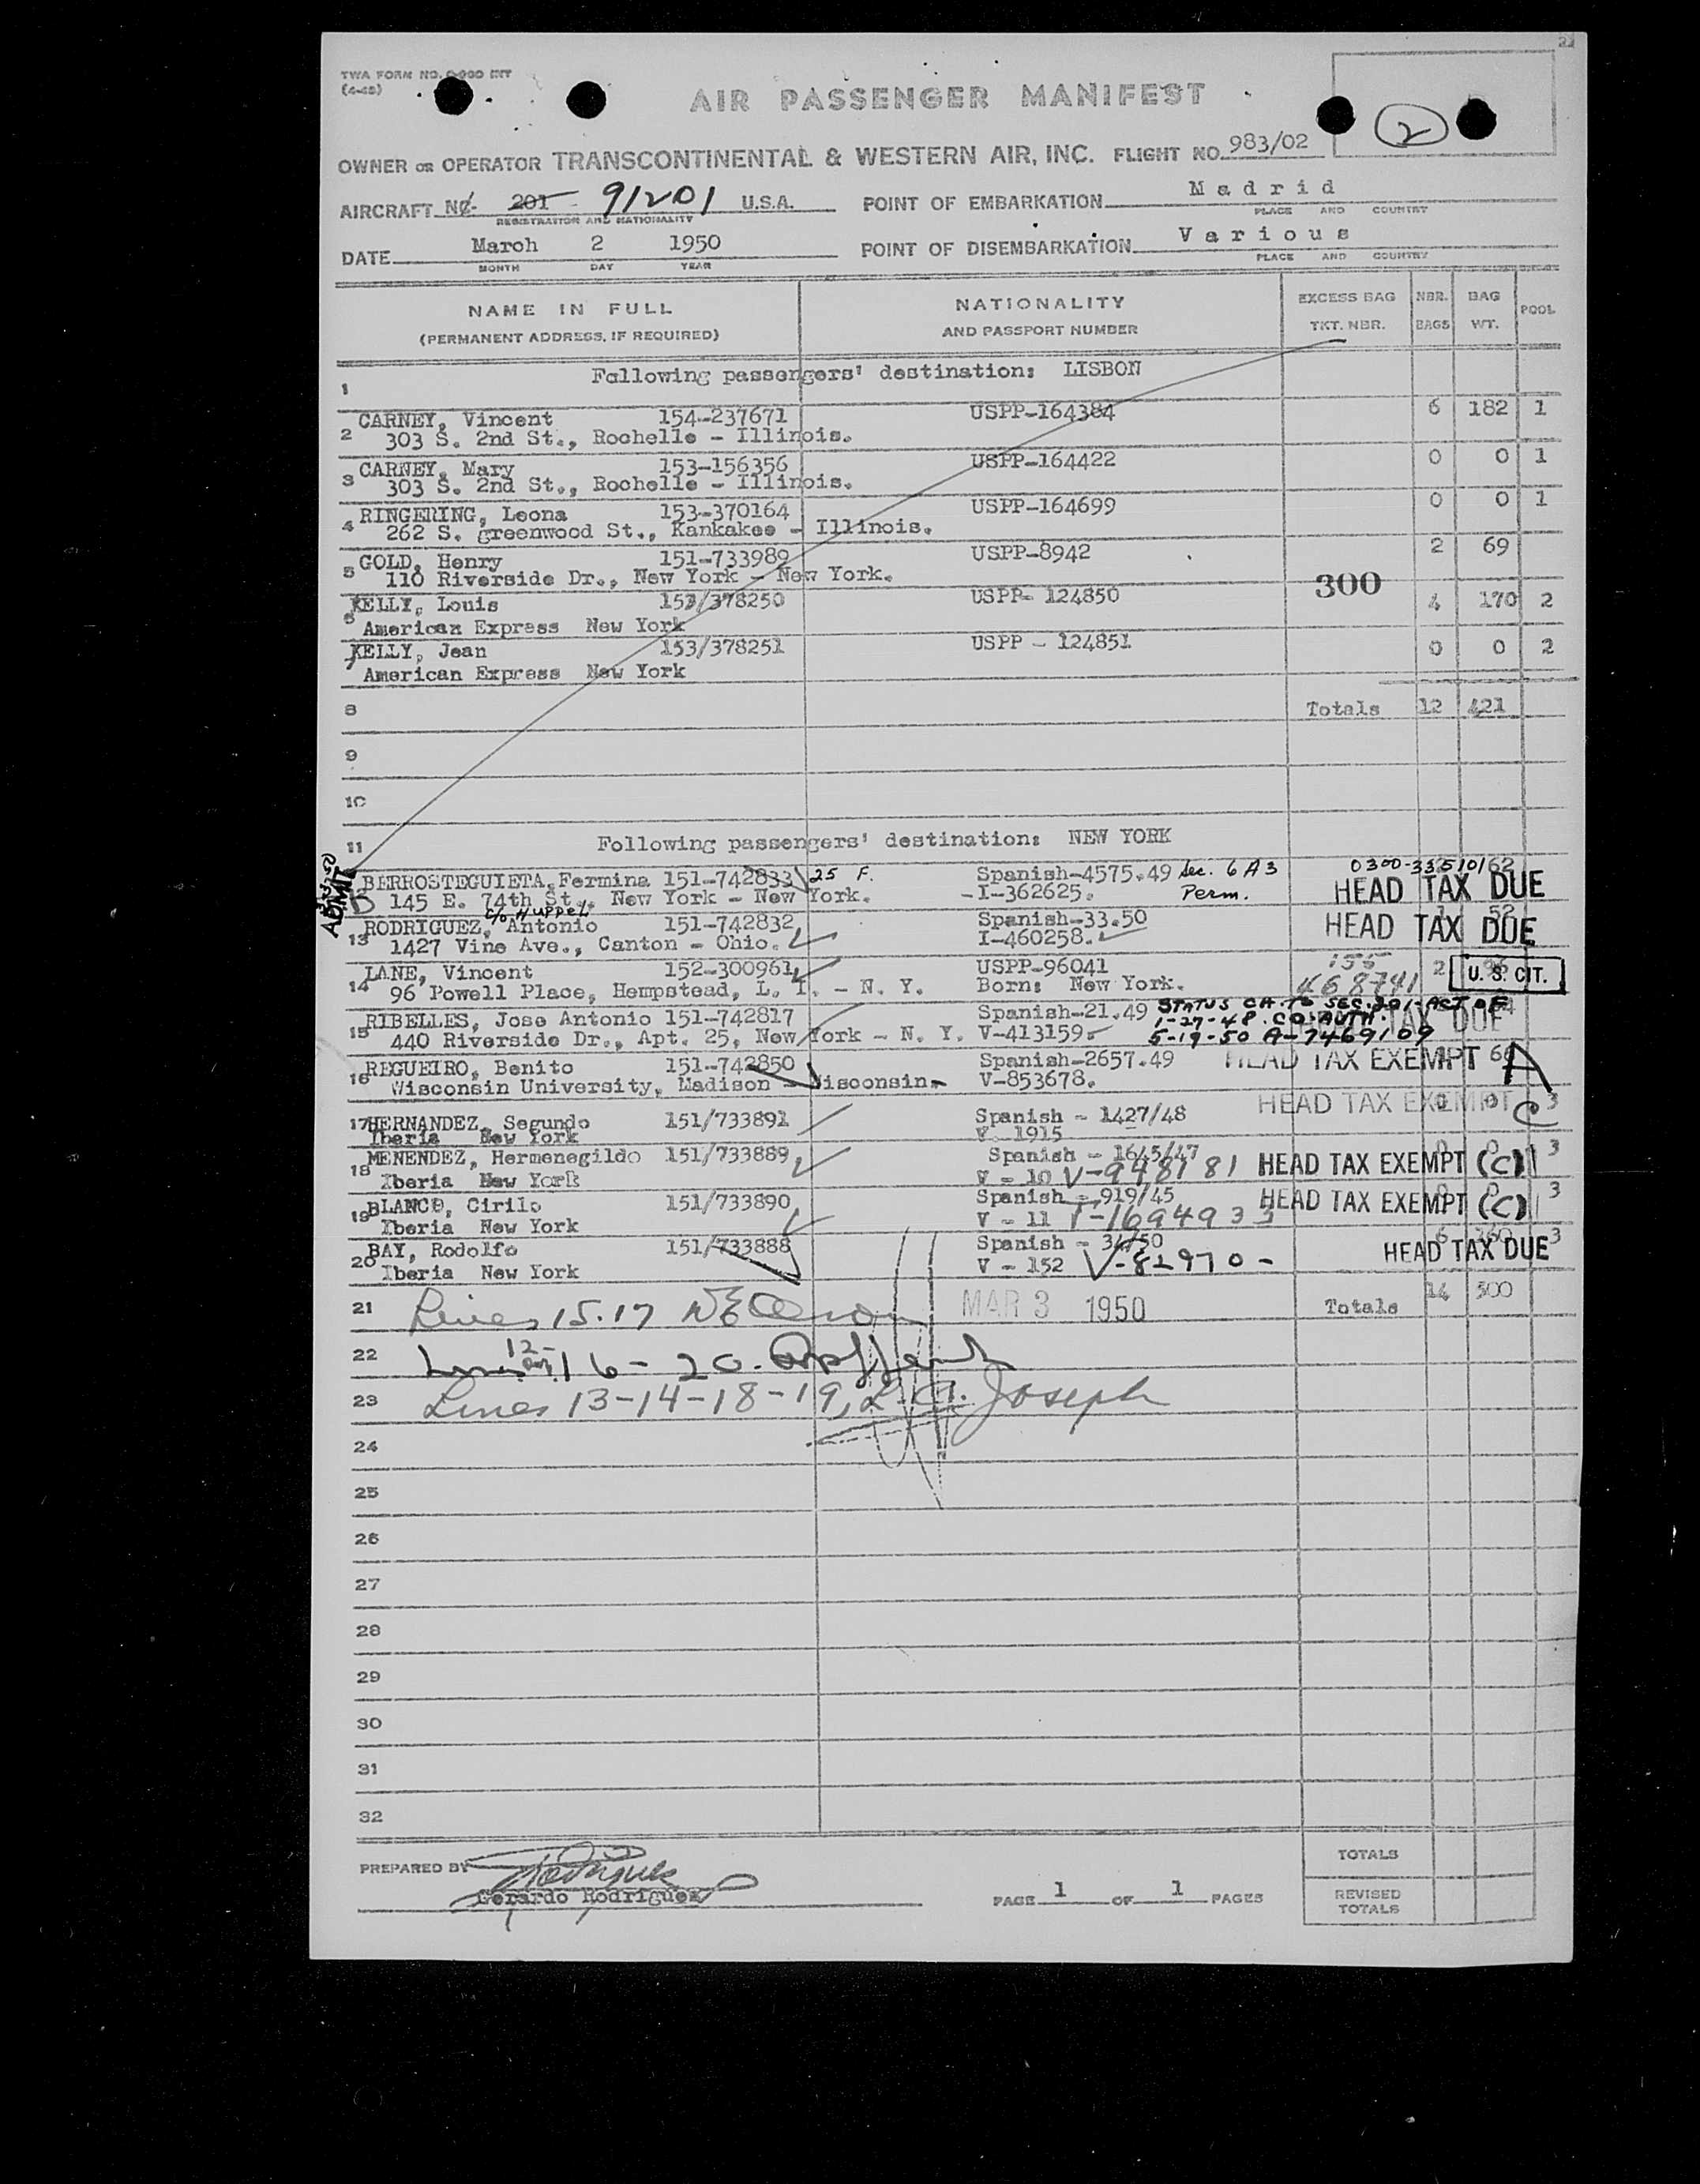 TWA FORM NO.
AIR PASSENGER MANIFEST
2
OWNER OR OPERATOR TRANSCONTINENTAL & WESTERN AIR, INC. FLIGHT NO. 983/02
AIRCRAFT NO. 201 - 91201 U.S.A. POINT OF EMBARKATION Madrid
REGISTRATION AND NATIONALITY PLACE AND COUNTRY
DATE March 2 1950 POINT OF DISEMBARKATION Various
MONTH DAY YEAR PLACE AND COUNTRY
NAME IN FULL NATIONALITY EXCESS BAG NBR. BAG POOL
(PERMANENT ADDRESS, IF REQUIRED) AND PASSPORT NUMBER TKT. NBR. BAGS WT.
1 Following passengers' destination: LISBON
CARNEY, Vincent 154-237671 USPP-164384 6 182 1
2 303 S. 2nd St., Rochelle - Illinois.
CARNEY, Mary 153-156356 USPP-164422 0 0 1
3 303 S. 2nd St., Rochelle - Illinois.
RINGERING, Leona 153-370164 USPP-164699 0 0 1
4 262 S. greenwood St., Kankakee - Illinois.
GOLD, Henry 151-733989 USPP-8942 2 69
5 110 Riverside Dr., New York - New York.
300
KELLY, Louis 153/378250 USPP- 124850 4 170 2
6 American Express New York
KELLY, Jean 153/378251 USPP - 124851 0 0 2
7 American Express New York
8 Totals 12 421
9
10
11 Following passengers' destination: NEW YORK
ADMIT
BERROSTEGUIETA, Fermina 151-742833 25 F. Spanish-4575.49 Sec. 6 A 3 0300-33510162
145 E. 74th St., New York - New York. -I-362625. Perm. HEAD TAX DUE
c/o Huppel
RODRIGUEZ, Antonio 151-742832 Spanish-33.50 HEAD TAX DUE 52
13 1427 Vine Ave., Canton - Ohio. I-460258.
LANE, Vincent 152-300961 USPP-96041 155 2 U.S. CIT.
14 96 Powell Place, Hempstead, L. I. - N. Y. Born: New York. 468741
RIBELLES, Jose Antonio 151-742817 Spanish-21.49 STATUS CH. TO SEC. 201-ACT OF
15 440 Riverside Dr., Apt. 25, New York - N. Y. V-413159 1-27-48 CO. AUTH. HEAD TAX DUE
5-19-50 A-7469109
REGUEIRO, Benito 151-742850 Spanish-2657.49 HEAD TAX EXEMPT A
16 Wisconsin University, Madison - Wisconsin. V-853678.
17 HERNANDEZ, Segundo 151/733891 Spanish - 1427/48 HEAD TAX EXEMPT C 0 0 3
Iberia New York V. 1915
MENENDEZ, Hermenegildo 151/733889 Spanish - 1645/47 HEAD TAX EXEMPT (C) 0 0 3
18 Iberia New York V - 10 V-948181
BLANCO, Cirilo 151/733890 Spanish - 919/45 HEAD TAX EXEMPT (C) 0 0 3
19 Iberia New York V - 11
BAY, Rodolfo 151/733888 Spanish - 34/50 HEAD TAX DUE 6 3
20 Iberia New York V - 152 V-82970-
21 Lines 15.17 MAR 3 1950 Totals 14 500
22 12- 16-20.
23 Lines 13-14-18-19, L. A. Joseph
24
25
26
27
28
29
30
31
32
PREPARED BY Gerardo Rodriguez PAGE 1 OF 1 PAGES
TOTALS
REVISED
TOTALS